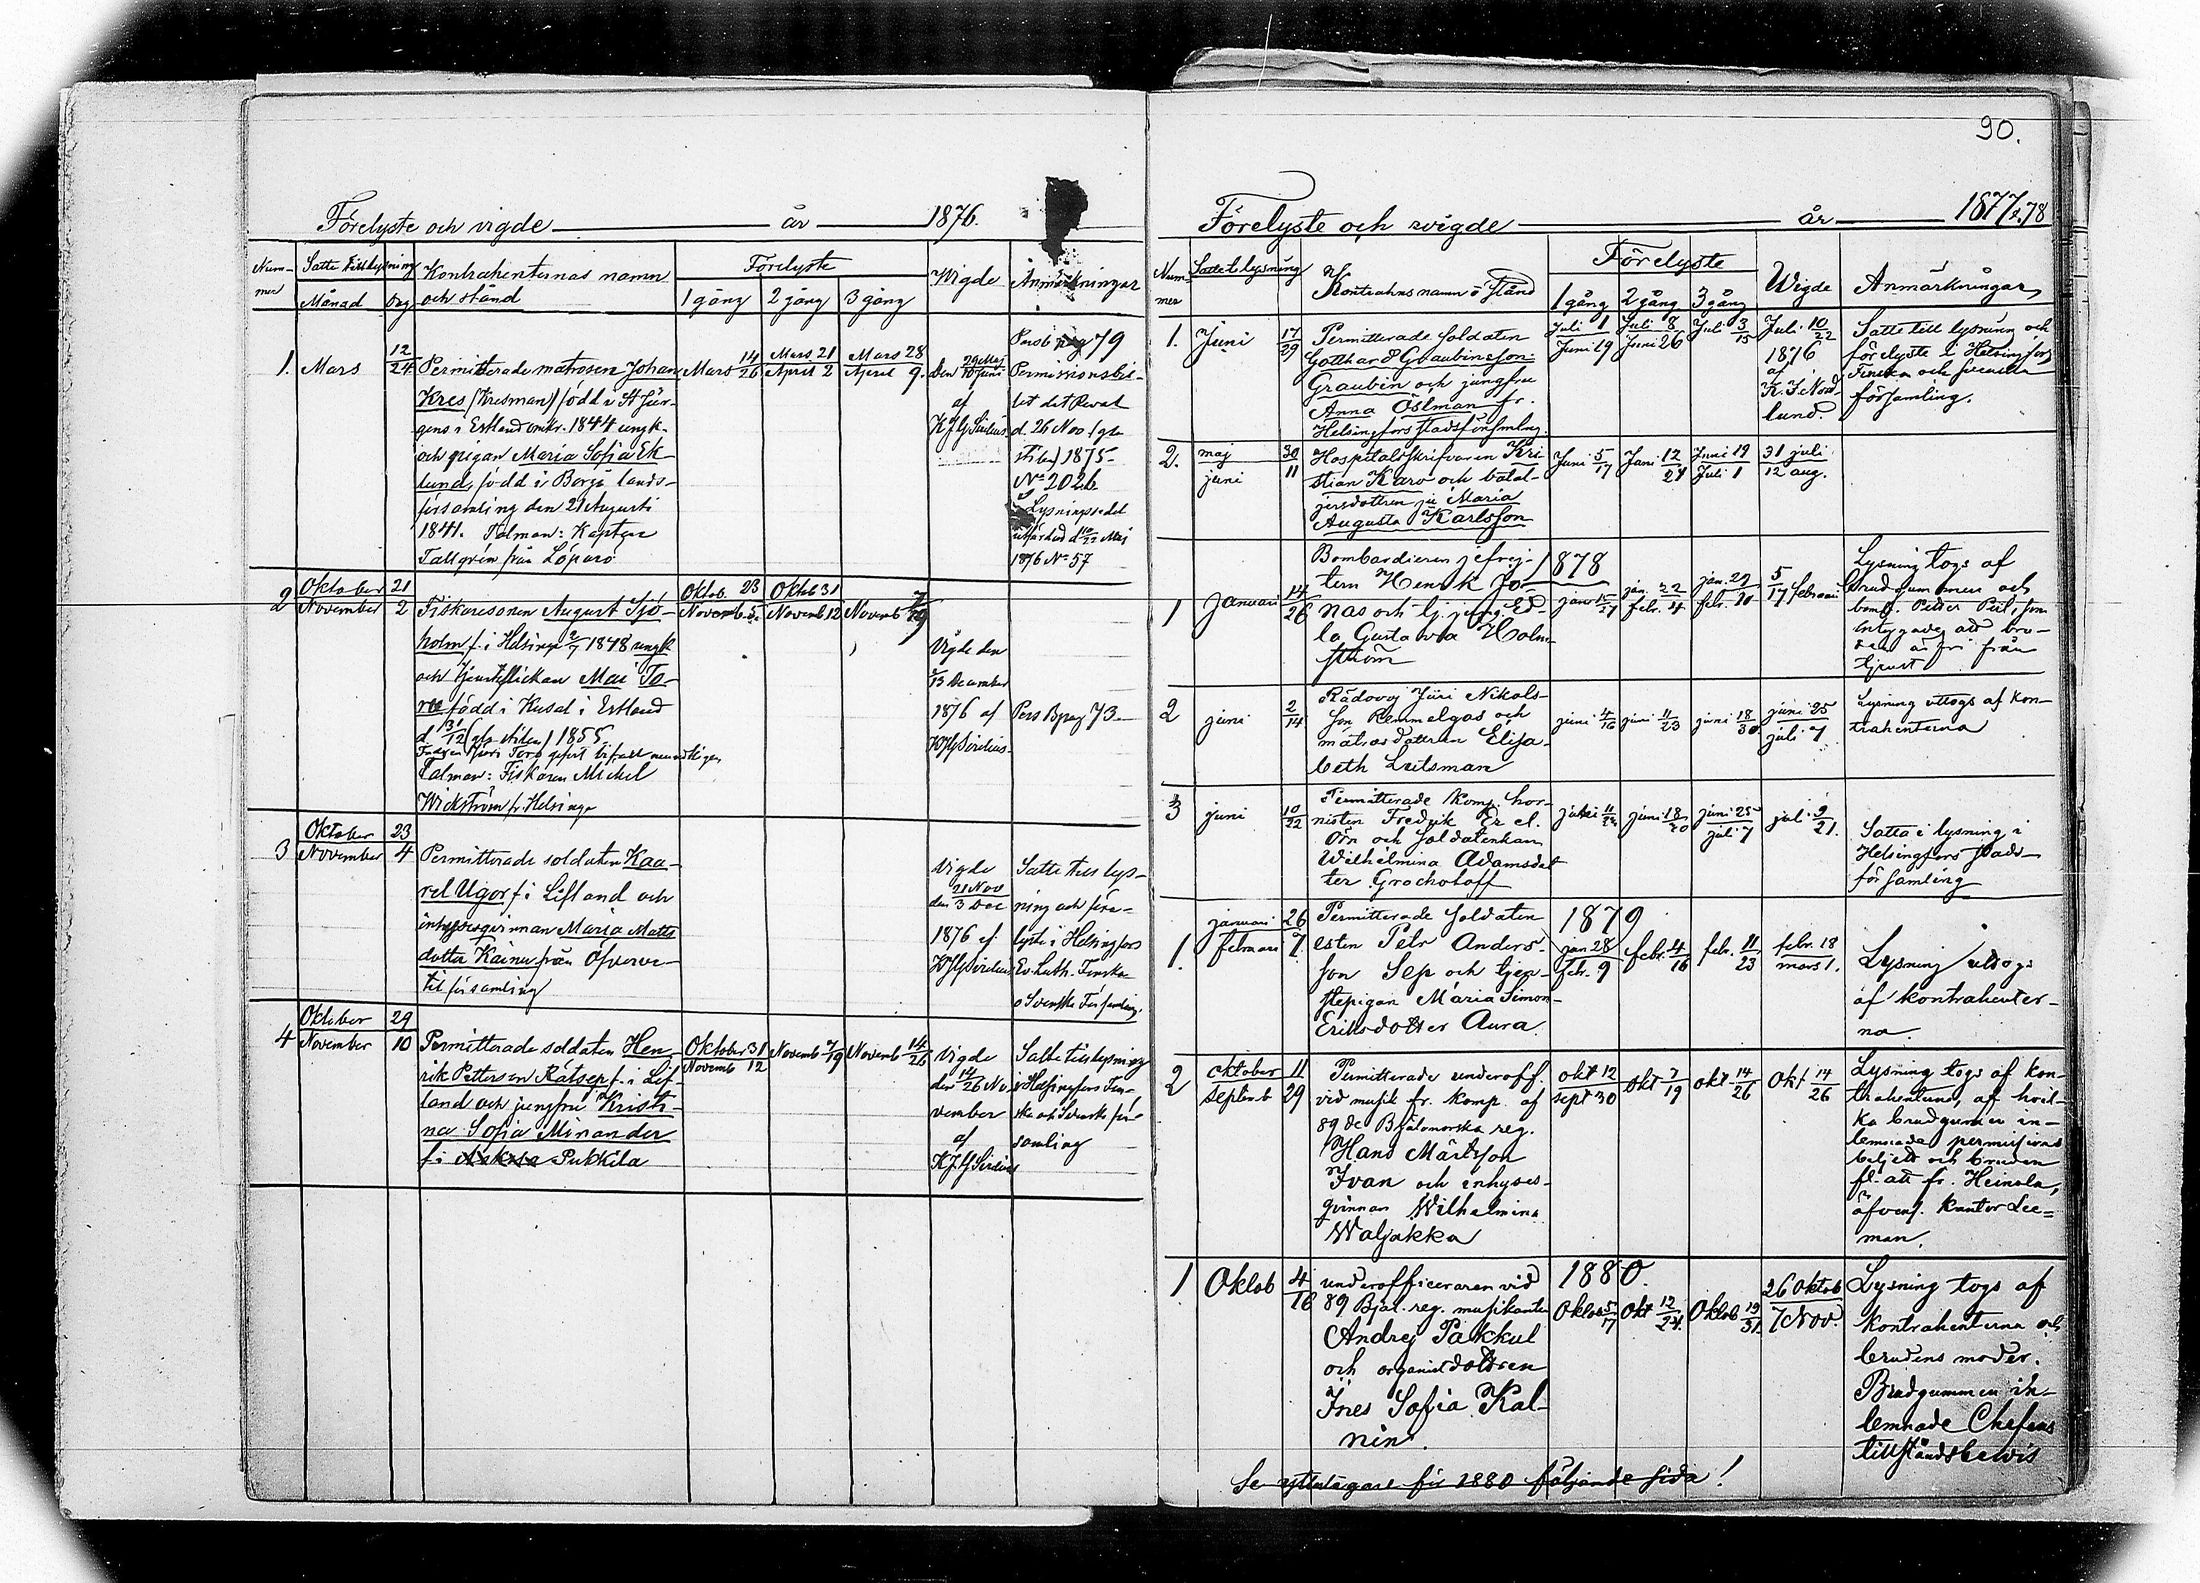 90.
Förelyste och vigde år 1876.
Nummer
Satte till lysning
Månad
Dag
Kontrahenternas namn
och stånd
Förelyste
1 gång
2 gång
3 gång
Wigde
Anmärkningar
1.
Mars
12/24
Permitterade matrosen Johan
Kres (Kresman) född i St Jür-
gens i Estland omkr. 1844 ungk.
och pigan Maria Sofia Ek-
lund, född i Borgå lands-
församling den 21 Augusti
1841. Talman: Kapten
Tallgrén från Löparö
Mars 14/26
Mars 21
April 2
Mars 28
April 9.
den 29 Maj/10 Juni
af
K J G Sirelius
Pers b pag 79
Permissionsbil-
let dat Reval
d. 26 Nov (gla
stilen) 1875
No 2026
Lysningssedel
utfärdad d 10/22 Maj
1876 No 57
2
Oktober 21
November 2
Fiskaresonen August Sjö-
holm f. i Helsinge 2/7 1848 ungk
och tjensteflickan Mai To-
ree född i Kusal i Estland
d 31/12 (gla stilen) 1855
Talman: Fiskaren Mickel
Wickström fr. Helsinge
Oktob. 23
Novemb. 5
Oktb 31
Novemb 12
Novemb 7/19
Vigde den
1/13 December
1876 af
K J G Sirelius
Pers B pag 73
3
Oktober 23
November 4
Permitterade soldaten Kaa-
rel Ugor f. i Lifland och
inhysesqvinnan Maria Matts
dotter Kainu från Öfverve-
til församling
Vigde
den 21 Nov/3 Dec
1876 af
K J G Sirelius
Satte till lys-
ning och före-
lyste i Helsingfors
Ev. Luth. Finska
o Svenska Församling.
4
Oktober 29
November 10
Permitterade soldaten Hen-
rik Pettersson Rätsep f. i Lif-
land och jungfru Kristi-
na Sofia Minander
f. i Pukkila
Oktober 31
Novemb 12
Novemb 7/19
Novemb 14/26
Vigde
den 14/26 No-
vember
af
K J G Sirelius
Satte till lysning
i Helsingfors Fin-
ska och Svenska för-
samling
Förelyste och vigde år 1877 & 78
Nummer
Satte t lysning
Kontrahns namn o stånd
Förelyste
1 gång
2 gång
3 gång
Wigde
Anmärkningar
1.
Juni
17/29
Permitterade soldaten
Gotthard Graubinsson
Graubin och jungfru
Anna Östman fr.
Helsingfors stadsförsmlng.
Juli 1
Juni 19
Juli 8
Juni 26
Juli 3/15
Juli 10/22
1876
af
K. J. Nord-
lund
Satte till lysning och
förelyste i Helsingfors
Finska och svenska
församling.
2.
maj 30
juni 11
Hospitalsskrifvaren Kri
stian Karo och batal-
jersdottren ju Maria
Augusta Karlsson
Juni 5/17
Juni 12/24
Juni 19
Juli 1
31 juli
12 aug.
1878
1
Januari
14/26
Bombardieren jefrej-
tern Henrik Jo-
nas och tj. jungfr El-
la Gustava Holm-
ström
jan. 15/27
jan. 22
febr. 4
jan. 29
febr. 10
5/17 februari
Lysning togs af
brudgummen och
bomb. Petter Peil, som
intygade att bru-
den är fri från
tjenst
2
juni
2/14
Rädovoj Jüri Nikols-
son Remmelgas och
matrosdottren Elisa-
beth Leitsman
juni 4/16
juni 11/23
juni 18/30
juni 25
juli 7
Lysning uttogs af kon-
trahenterna
3
juni
10/22
Permitterade komp. hor-
nisten Fredrik Er el.
Örn och soldatenkan
Wilhelmina Adamsdot
ter Grocholoff
juni 11/23
juni 18/30
juni 25
juli 7
juli 9/21.
Satta i lysning i
Helsingfors stads-
församling
1879
1.
januari 26
februari 7
Permitterade soldaten
esten Petr Anders-
son Sep och tjen-
stepigan Maria Simon-
Eriksdotter Aura.
jan 28
febr. 9
febr. 4/16
febr. 11/23
febr. 18
mars 1.
Lysning uttogs
af kontrahenter-
na.
2
oktober 11
septemb 29
Permitterade underoff.
vid musik fr. komp. af
89 de Bjälomorska reg.
Hans Märtsson
Ivan och inhyses-
qvinnan Wilhelmina
Waljakka
okt 12
sept 30
okt 7/19
okt 14/26
Okt 14/26
Lysning togs af kon-
trahenterna, af hvil-
ka brudgummen in-
lemnade permissions
biljett och bruden
fl. att. fr. Heinola,
äfvens. Kantor Lee-
man.
1880.
1
Oktob
4/16
underofficeraren vid
89 Bjäl. reg. musikanten
Andrej Päkkul
och organistdottren
Ines Sofia Kal-
nin.
Oktob 5/17
Okt 12/24.
Oktob 19/31.
26 Oktob
7 Nov.
Lysning togs af
kontrahenterna och
brudens moder.
Brudgummen in-
lemnade Chefens
tillståndsbevis
Se ytterligare för 1880 följande sida!